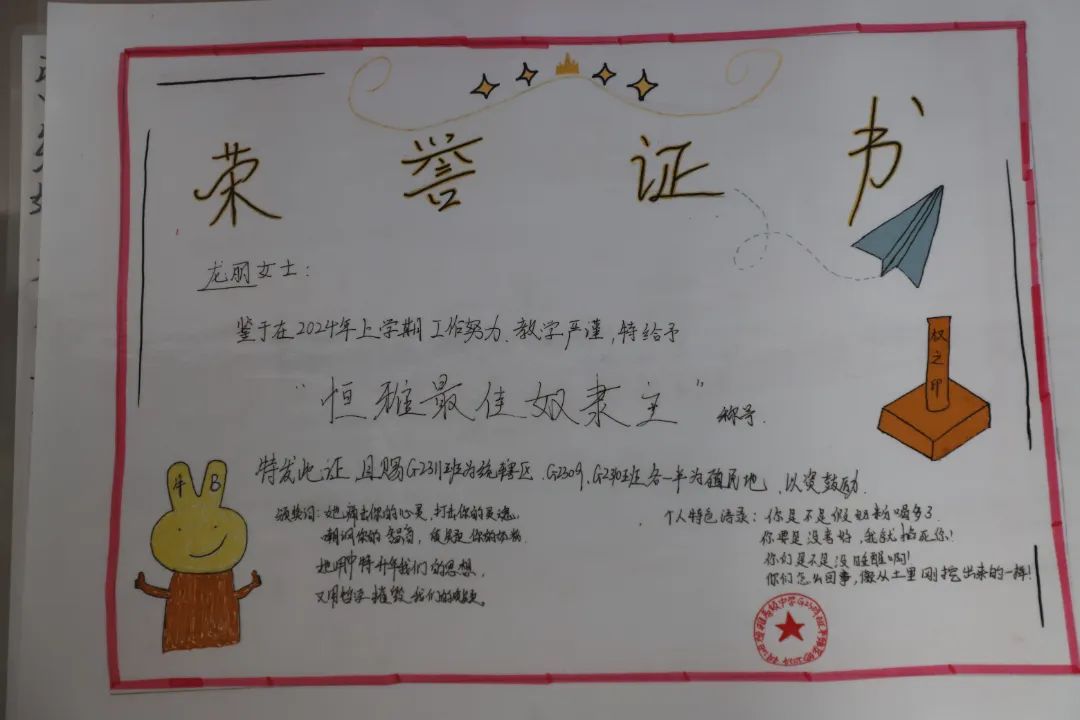 荣誉证书
龙丽女士：
鉴于在2024年上学期工作努力、教学严谨，特给予
“恒雅最佳奴隶主”称号.
特发此证，且赐G2311班为统辖区，G2309、G2310班各一半为殖民地，以资鼓励.
权之印
牛B
颁奖词：她痛击你的心灵，打击你的灵魂，
嘲讽你的
她用 特升华我们的思想，
又用哲学摧毁我们的
个人特色语录：你是不是假奶粉喝多了
你要是没考好，我就掐死你！
你们是不是没睡醒啊！
你们怎么回事，像从土里刚挖出来的一样！